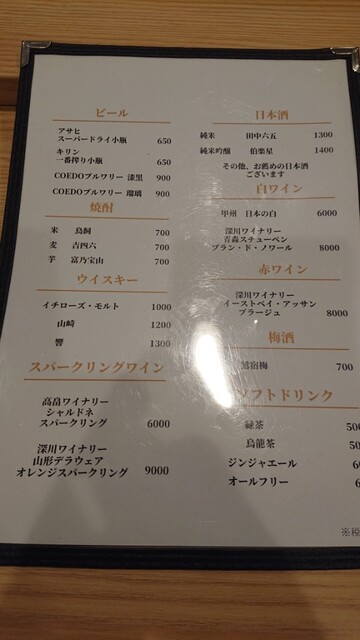 ビール
アサヒ
スーパードライ小瓶 650
キリン
一番搾り小瓶 650
COEDOブルワリー 漆黒 900
COEDOブルワリー 瑠璃 900
焼酎
米 鳥飼 700
麦 吉四六 700
芋 富乃宝山 700
ウイスキー
イチローズ・モルト 1000
山崎 1200
響 1300
スパークリングワイン
高畠ワイナリー
シャルドネ
スパークリング 6000
深川ワイナリー
山形デラウェア
オレンジスパークリング 9000
日本酒
純米 田中六五 1300
純米吟醸 伯楽星 1400
その他、お薦めの日本酒
ございます
白ワイン
甲州 日本の白 6000
深川ワイナリー
青森スチューベン
ブラン・ド・ノワール 8000
赤ワイン
深川ワイナリー
イーストベイ・アッサン
ブラージュ 8000
梅酒
鴬宿梅 700
ソフトドリンク
緑茶
烏龍茶
ジンジャエール
オールフリー
※税